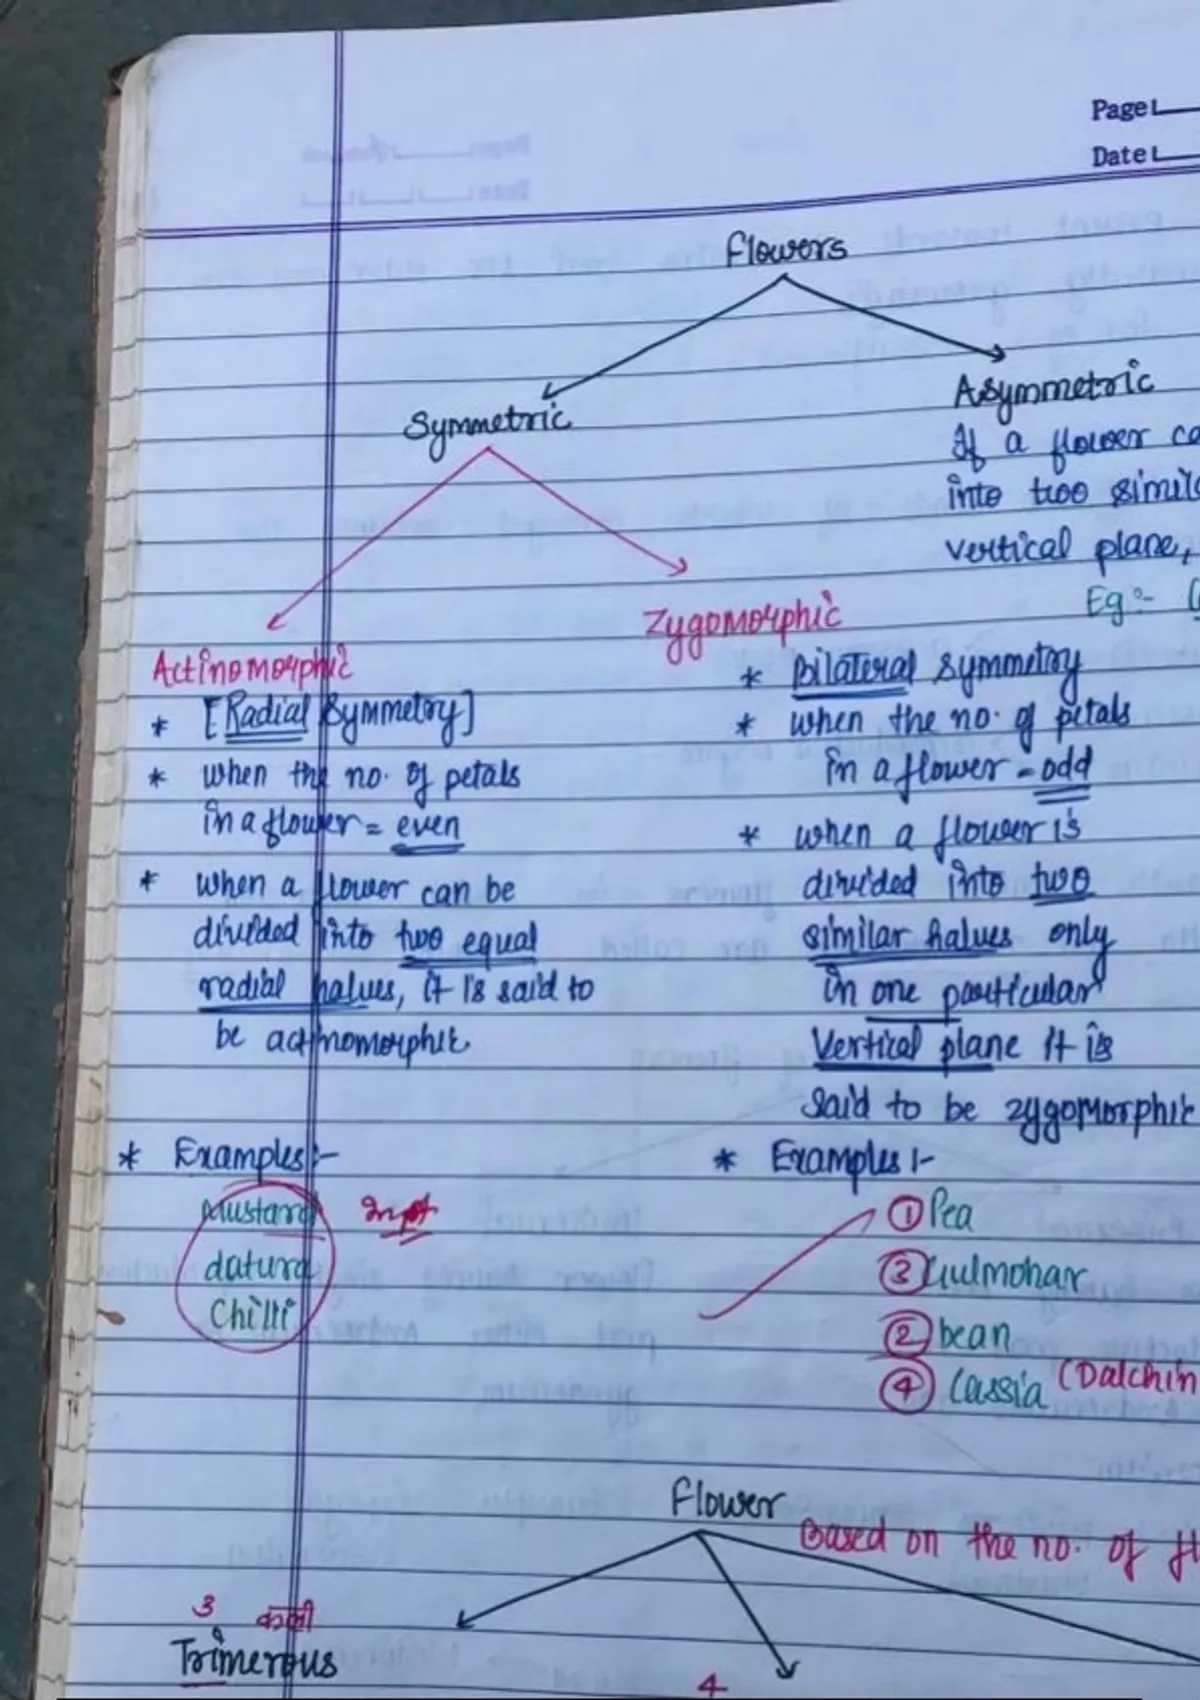 Page
Date
Flowers
Symmetric
Asymmetric
If a flower
into two
vertical plane,
Eg:-
Actinomorphic
* [Radial Symmetry]
* when the no. of petals
in a flower = even
* when a flower can be
divided into two equal
radial halves, it is said to
be actinomorphic
* Examples:-
Mustard
datura
Chilli
Zygomorphic
* Bilateral symmetry
* when the no. of petals
in a flower = odd
* when a flower is
divided into two
similar halves only
in one particular
Vertical plane it is
said to be zygomorphic
* Examples :-
① Pea
③ Gulmohar
② bean
④ Cassia (Dalchin
Flower
Based on the no. of
3
Trimerous
4